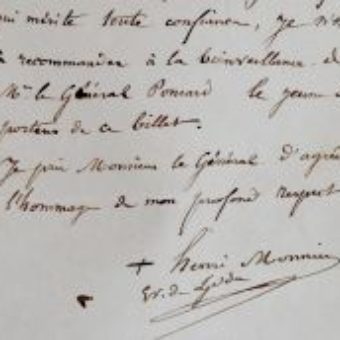 qui mérite toute confiance, je n'h
à recommander à la bienveillance d
Mr le Général Poncard le jeune
porteur de ce billet.
Je prie Monsieur le Général d'agré
l'hommage de mon profond respect
+ henri Monnier
Ev. de